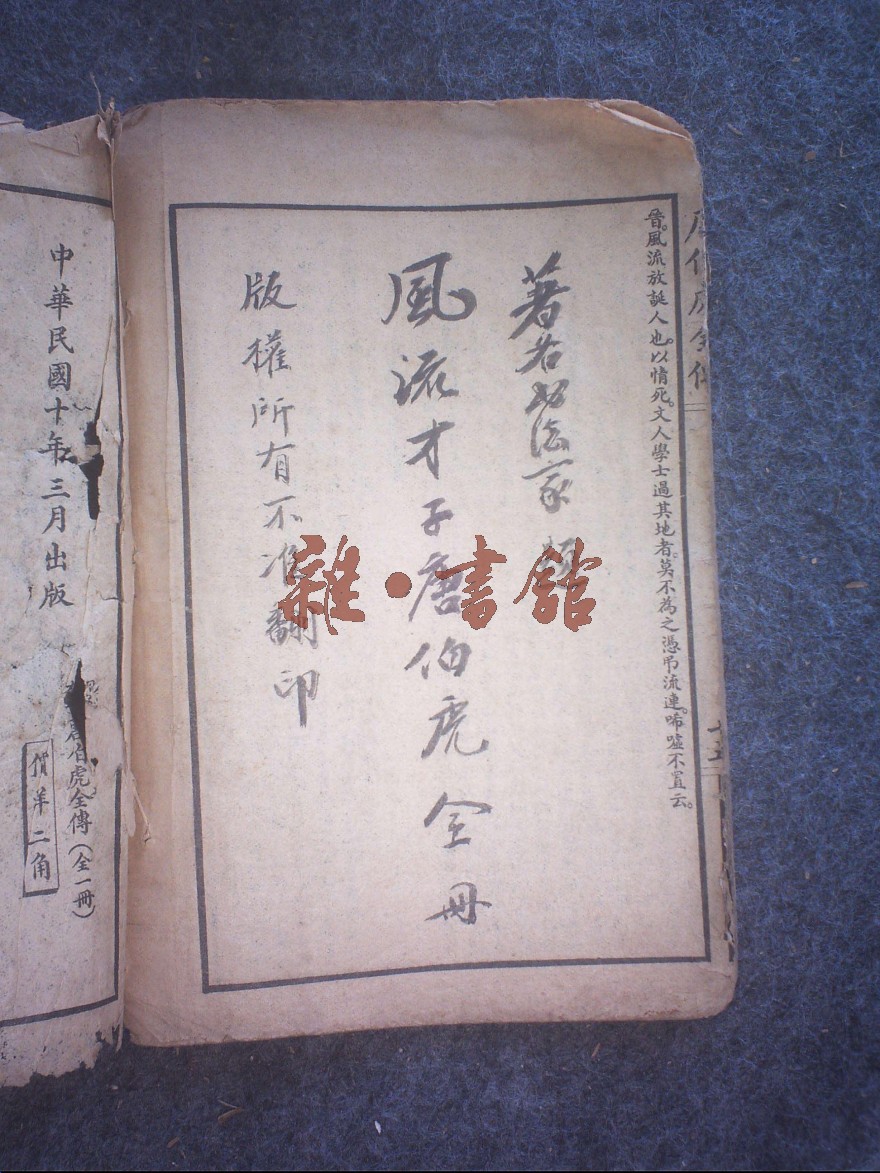 唐伯虎全傳
十五
昔。風流放誕人也。以情死。文人學士過其地者。莫不為之憑弔流連。唏噓不置云。
著名书法家
風流才子唐伯虎全册
版權所有不准翻印
雜·書館
中華民國十年三月出版
唐伯虎全傳（全一冊）
價洋二角